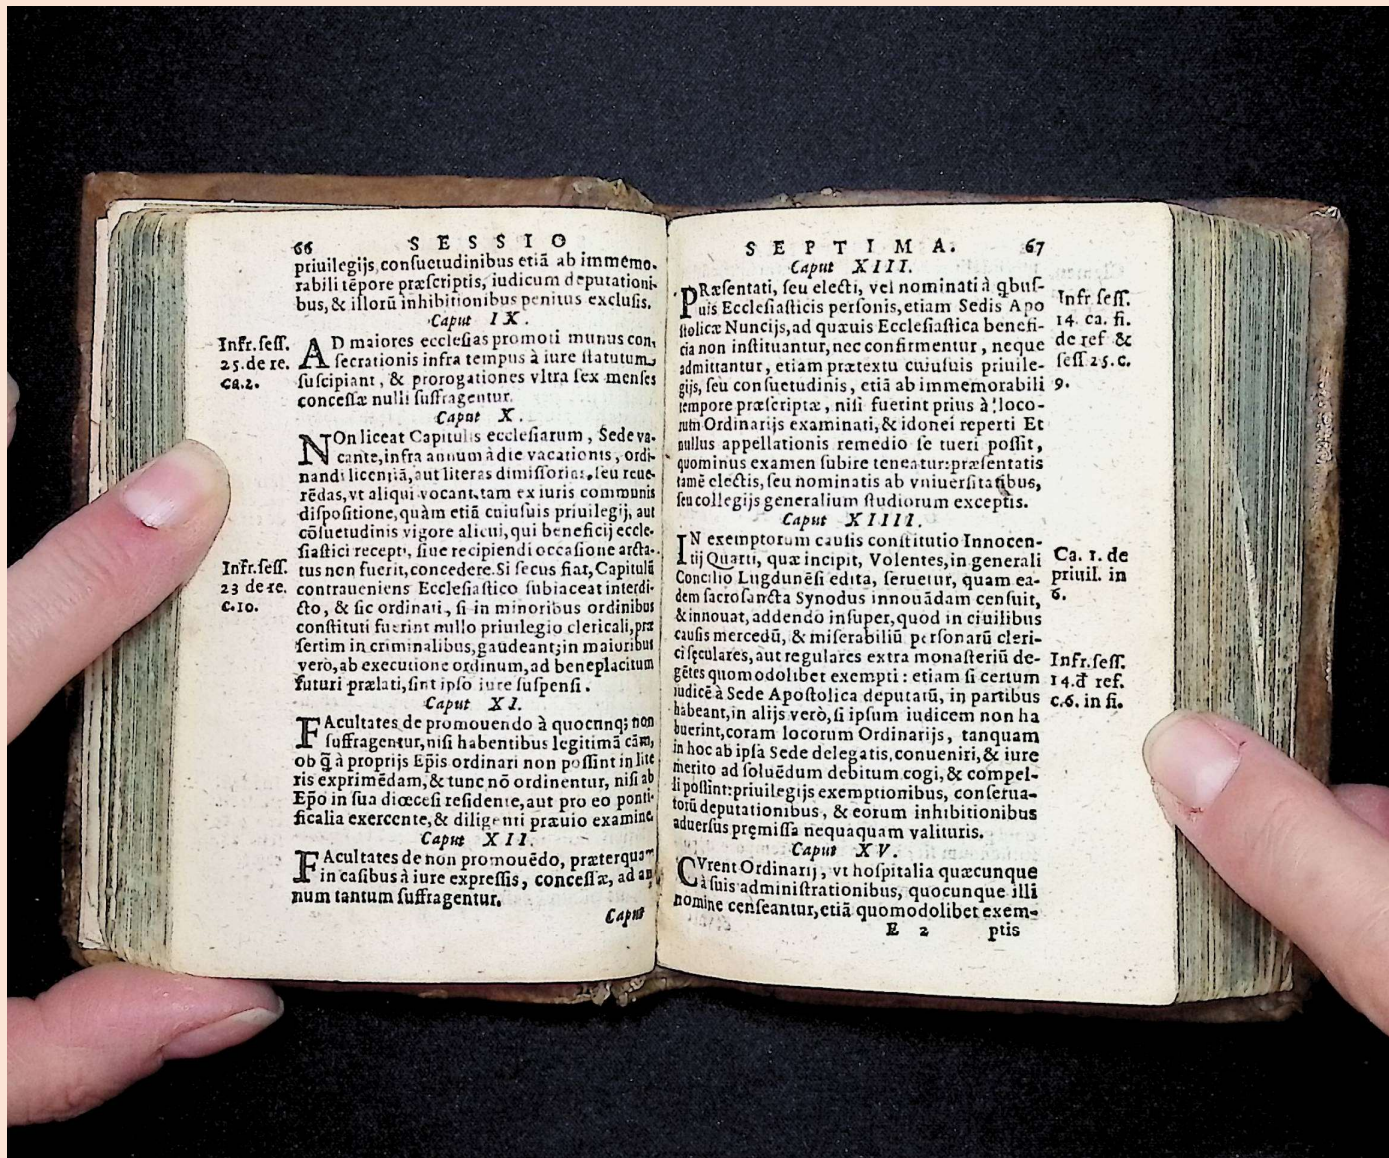 66 SESSIO
priuilegijs, conſuetudinibus etiã ab immemo-
rabili tẽpore præſcriptis, iudicum deputationi-
bus, & illorũ inhibitionibus penitus excluſis.
Caput IX.
Infr. ſeſſ.
25. de re.
ca.2.
AD maiores eccleſias promoti munus con,
ſecrationis infra tempus à iure ſtatutum
ſuſcipiant, & prorogationes vltra ſex menſes
conceſſæ nulli ſuffragentur.
Caput X.
NOn liceat Capitulis eccleſiarum, Sede va-
cante, infra annum à die vacationis, ordi-
nandi licentiã, aut literas dimiſſorias, ſeu reue-
rẽdas, vt aliqui vocant, tam ex iuris communis
diſpoſitione, quàm etiã cuiuſuis priuilegij, aut
cõſuetudinis vigore alicui, qui beneficij eccle-
ſiaſtici recepti, ſiue recipiendi occaſione arcta-
Infr. ſeſſ.
23 de re.
c.10.
tus non fuerit, concedere. Si ſecus fiat, Capitulũ
contraueniens Eccleſiaſtico ſubiaceat interdi-
cto, & ſic ordinati, ſi in minoribus ordinibus
conſtituti fuerint nullo priuilegio clericali, præ
ſertim in criminalibus, gaudeant; in maioribus
verò, ab executione ordinum, ad beneplacitum
futuri prælati, ſint ipſo iure ſuſpenſi.
Caput XI.
FAcultates de promouendo à quocunq; non
ſuffragentur, niſi habentibus legitimã cãm,
ob q̃ à proprijs Ep̃is ordinari non poſſint in lite
ris exprimẽdam, & tunc nõ ordinentur, niſi ab
Ep̃o in ſua diœceſi reſidente, aut pro eo ponti-
ficalia exercente, & diligenti præuio examine.
Caput XII.
FAcultates de non promouẽdo, præterquam
in caſibus à iure expreſſis, conceſſæ, ad an
num tantum ſuffragentur.
Caput
SEPTIMA. 67
Caput XIII.
PRæſentati, ſeu electi, vel nominati à qbuſ-
uis Eccleſiaſticis perſonis, etiam Sedis Apo
ſtolicæ Nuncijs, ad quæuis Eccleſiaſtica benefi-
cia non inſtituantur, nec confirmentur, neque
admittantur, etiam prætextu cuiuſuis priuile-
gijs, ſeu conſuetudinis, etiã ab immemorabili
tempore præſcriptæ, niſi fuerint prius à loco-
rum Ordinarijs examinati, & idonei reperti Et
nullus appellationis remedio ſe tueri poſſit,
quominus examen ſubire teneatur: præſentatis
tamẽ electis, ſeu nominatis ab vniuerſitatibus,
ſeu collegijs generalium ſtudiorum exceptis.
Infr. ſeſſ.
14. ca. fi.
de ref &
ſeſſ 25. c.
9.
Caput XIIII.
IN exemptorum cauſis conſtitutio Innocen-
tij Quarti, quæ incipit, Volentes, in generali
Concilio Lugdunẽſi edita, ſeruetur, quam ea-
dem ſacroſancta Synodus innouãdam cenſuit,
& innouat, addendo inſuper, quod in ciuilibus
cauſis mercedũ, & miſerabiliũ perſonarũ cleri-
ci ſęculares, aut regulares extra monaſteriũ de-
gẽtes quomodolibet exempti: etiam ſi certum
iudicẽ à Sede Apoſtolica deputatũ, in partibus
habeant, in alijs verò, ſi ipſum iudicem non ha
buerint, coram locorum Ordinarijs, tanquam
in hoc ab ipſa Sede delegatis, conueniri, & iure
merito ad ſoluẽdum debitum cogi, & compel-
li poſſint: priuilegijs exemptionibus, conſerua-
torũ deputationibus, & eorum inhibitionibus
aduerſus pręmiſſa nequaquam valituris.
Ca. 1. de
priuil. in
6.
Infr. ſeſſ.
14. d̃ ref.
c.6. in fi.
Caput XV.
CVrent Ordinarij, vt hoſpitalia quæcunque
à ſuis adminiſtrationibus, quocunque illi
nomine cenſeantur, etiã quomodolibet exem-
E 2 ptis